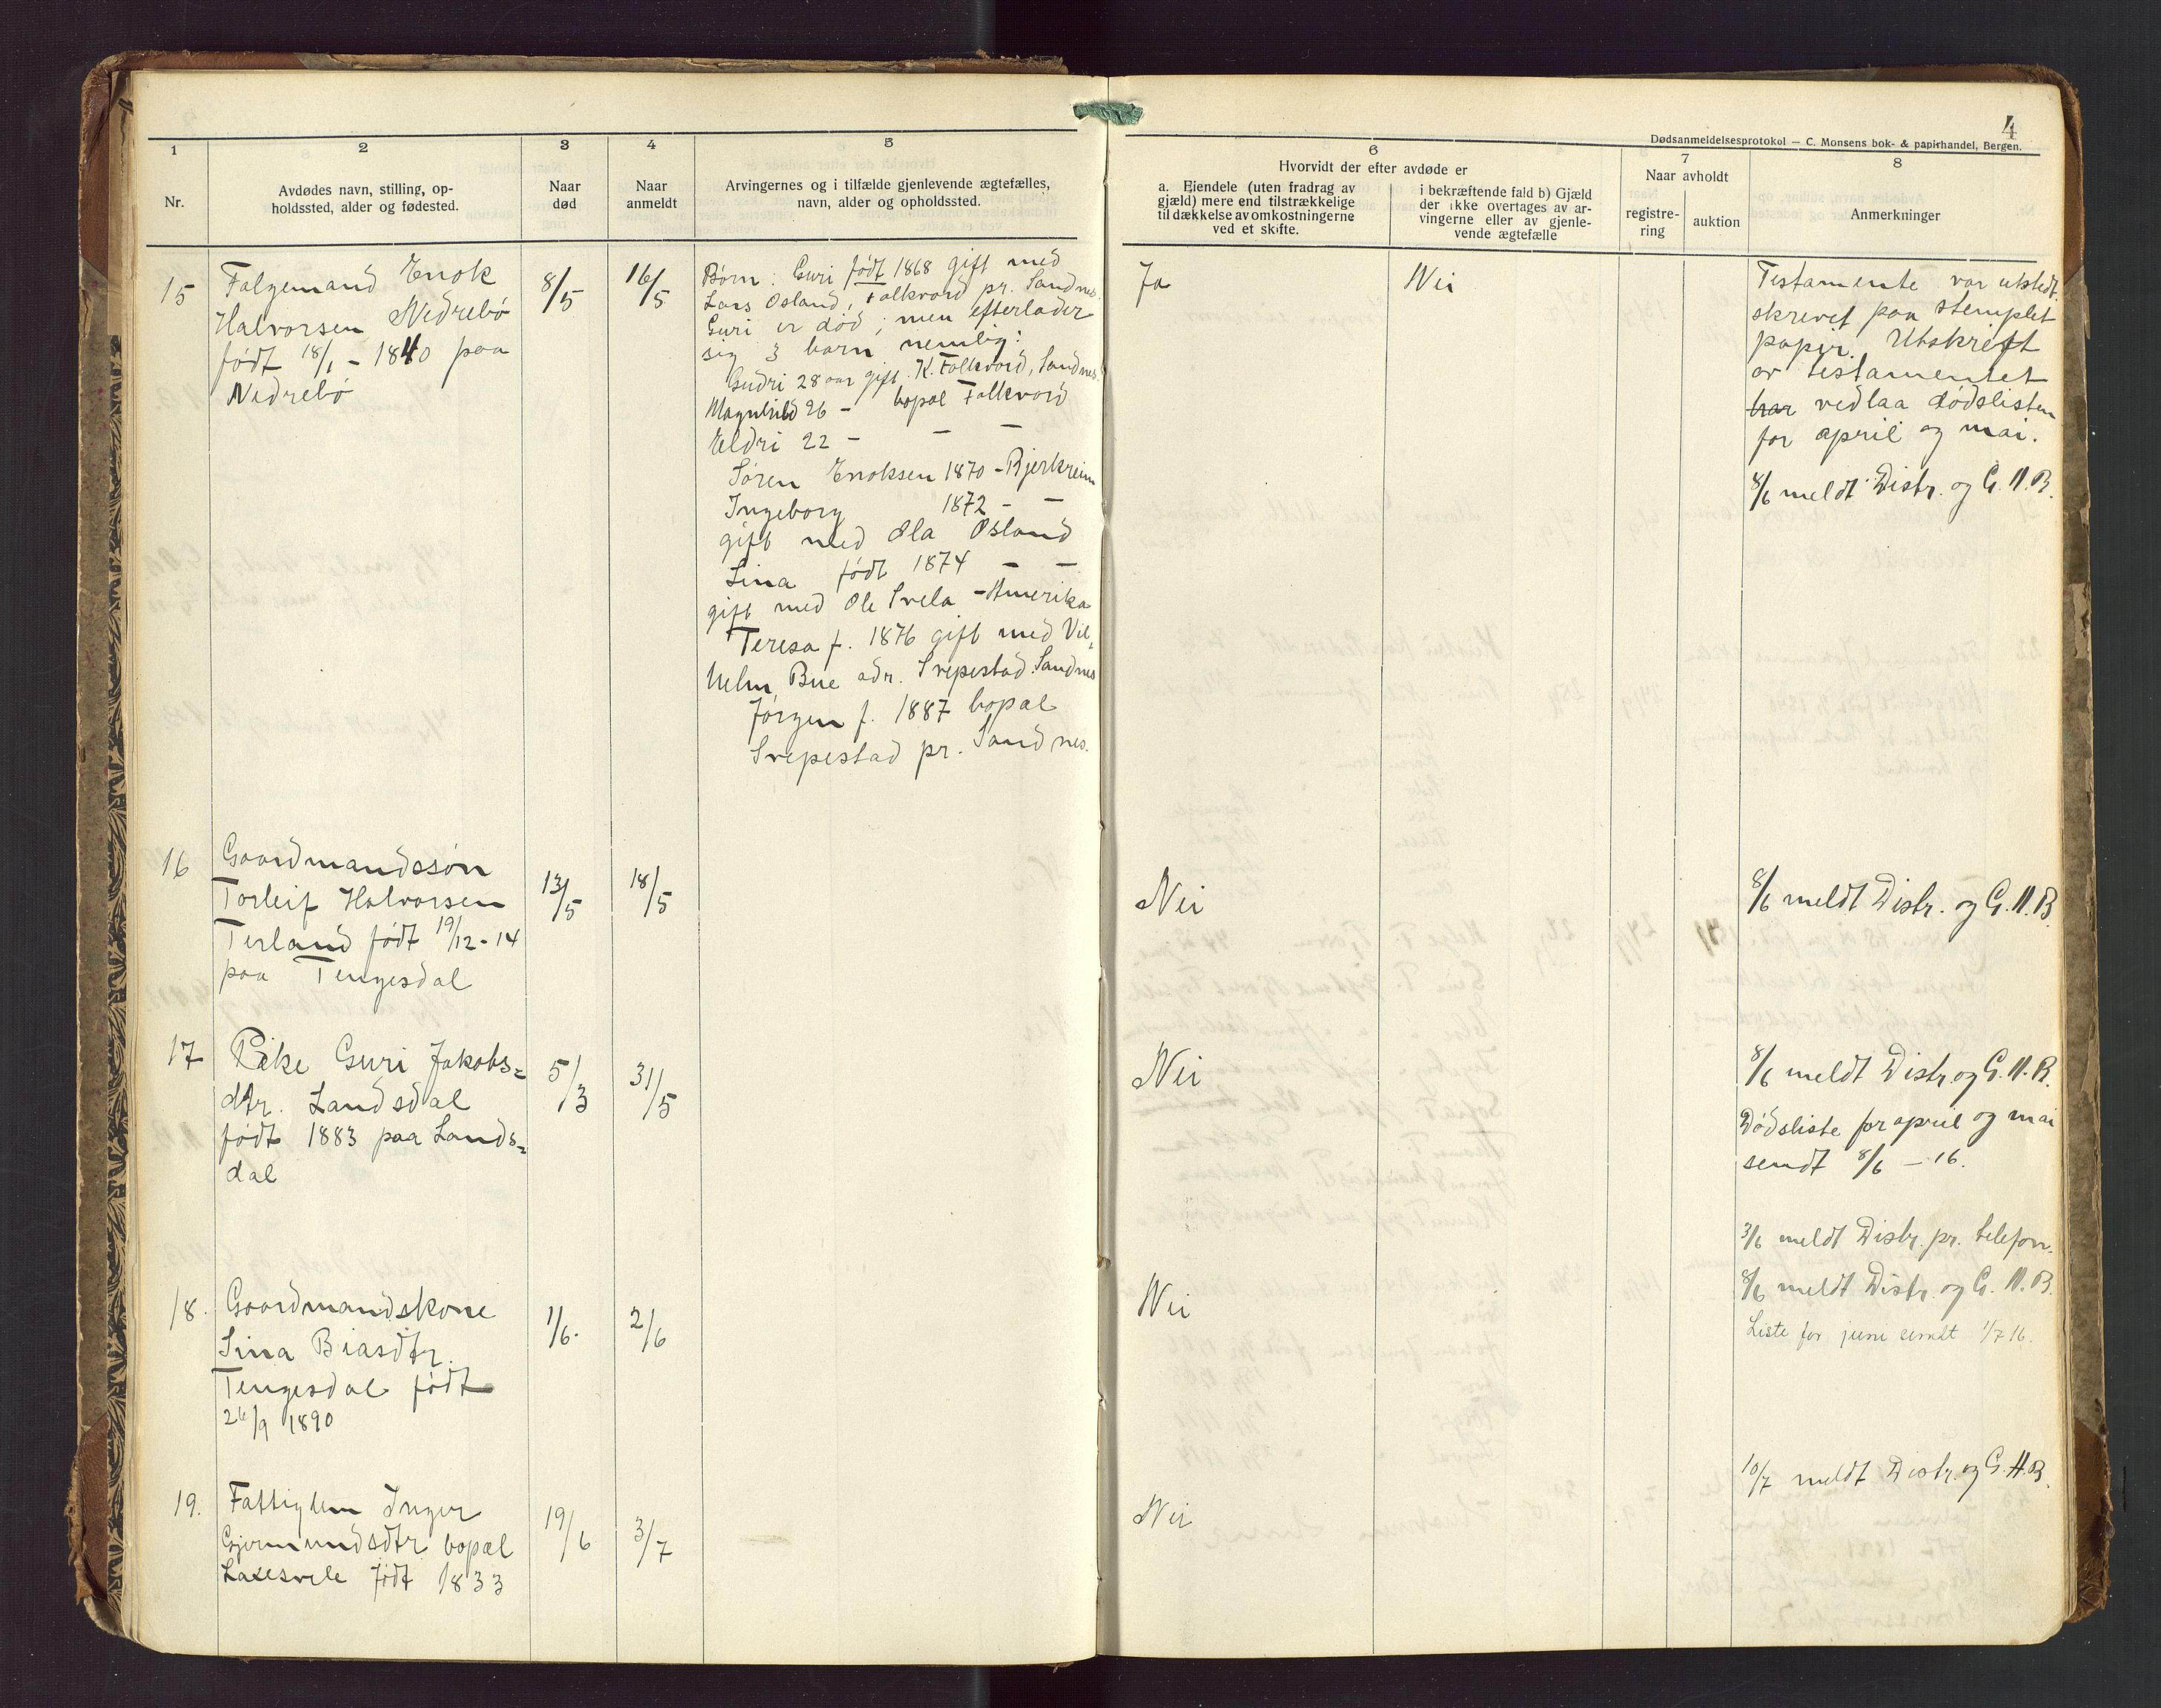 4
Dødsanmeldelsesprotokol — C. Monsens bok- & papirhandel, Bergen.
1
Nr.
2
Avdødes navn, stilling, op-
holdssted, alder og fødested.
3
Naar
død
4
Naar
anmeldt
5
Arvingernes og i tilfælde gjenlevende ægtefælles,
navn, alder og opholdssted.
6
Hvorvidt der efter avdøde er
a. Eiendele (uten fradrag av
gjæld) mere end tilstrækkelige
til dækkelse av omkostningerne
ved et skifte.
i bekræftende fald b) Gjæld
der ikke overtages av ar-
vingerne eller av gjenle-
vende ægtefælle
7
Naar avholdt
registre-
ring
auktion
8
Anmerkninger
15
Folgemand Enok
Halvorsen Nedrebö
födt 18/1 - 1840 paa
Nedrebö
8/5
16/5
Börn: Guri födt 1868 gift med
Lars Osland, Folkvord pr. Sandnes.
Guri er död; men efterlader
sig 3 barn nemlig:
Gudri 28 aar gift. K. Folkvord, Sandnes.
Magnhild 26 - bopæl Folkvord
Eldri 22 - - -
Sören Enoksen 1870 - Bjerkreim
Ingeborg 1872 - -
gift med Ola Osland
Lina födt 1874 - -
gift med Ole Svela - Amerika
Teresa f. 1876 gift med Vil-
helm Bue adr. Svepestad Sandnes
Jörgen f. 1887 bopæl
Svepestad pr. Sandnes.
Ja
Nei
Testamente var utstedt
skrevet paa stemplet
papir. Utskrift
av testamentet
har vedlaa dödslisten
for april og mai.
8/6 meldt Distr. og G. H. B.
16
Gaardmandssön
Torleif Halvorsen
Terland födt 19/12 - 14
paa Tengesdal
13/5
18/5
Nei
8/6 meldt Distr. og G. H. B
17
Pike Guri Jakobs=
dtr. Landsdal
födt 1883 paa Lands=
dal
5/3
31/5
Nei
8/6 meldt Distr. og G. H. B.
Dödsliste for april og mai
sendt 8/6 - 16.
3/6 meldt Distr. pr. telefon.
18.
Gaardmandskone
Sina Biasdtr.
Tengesdal födt
26/9 1890
1/6.
2/6
Nei
8/6 meldt Distr. og G. H. B.
Liste for juni sendt 1/7 16.
19.
Fattiglem Inger
Gjermundsdtr bopæl
Laxesvele födt 1833
19/6
3/7
Nei
10/7 meldt Distr. og G. H. B.